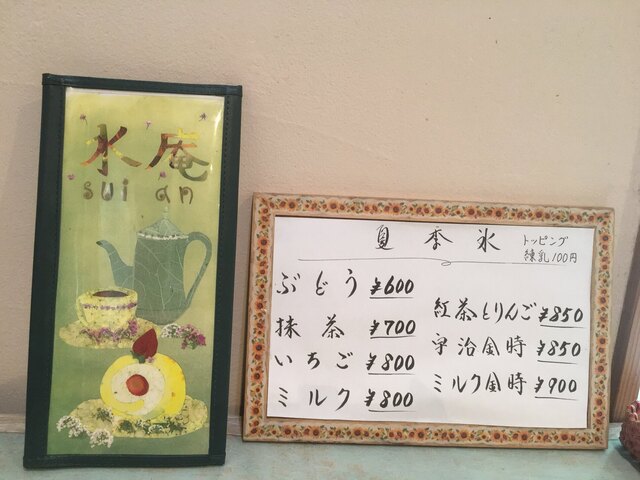 水庵
sui an
夏季氷
トッピング
練乳100円
ぶどう ¥600
抹茶 ¥700
いちご ¥800
ミルク ¥800
紅茶とりんご ¥850
宇治金時 ¥850
ミルク金時 ¥900